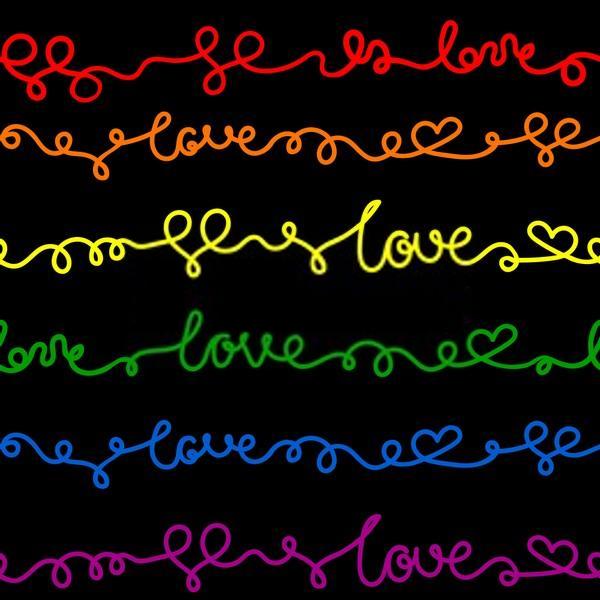 love
love
love
love love
love
love